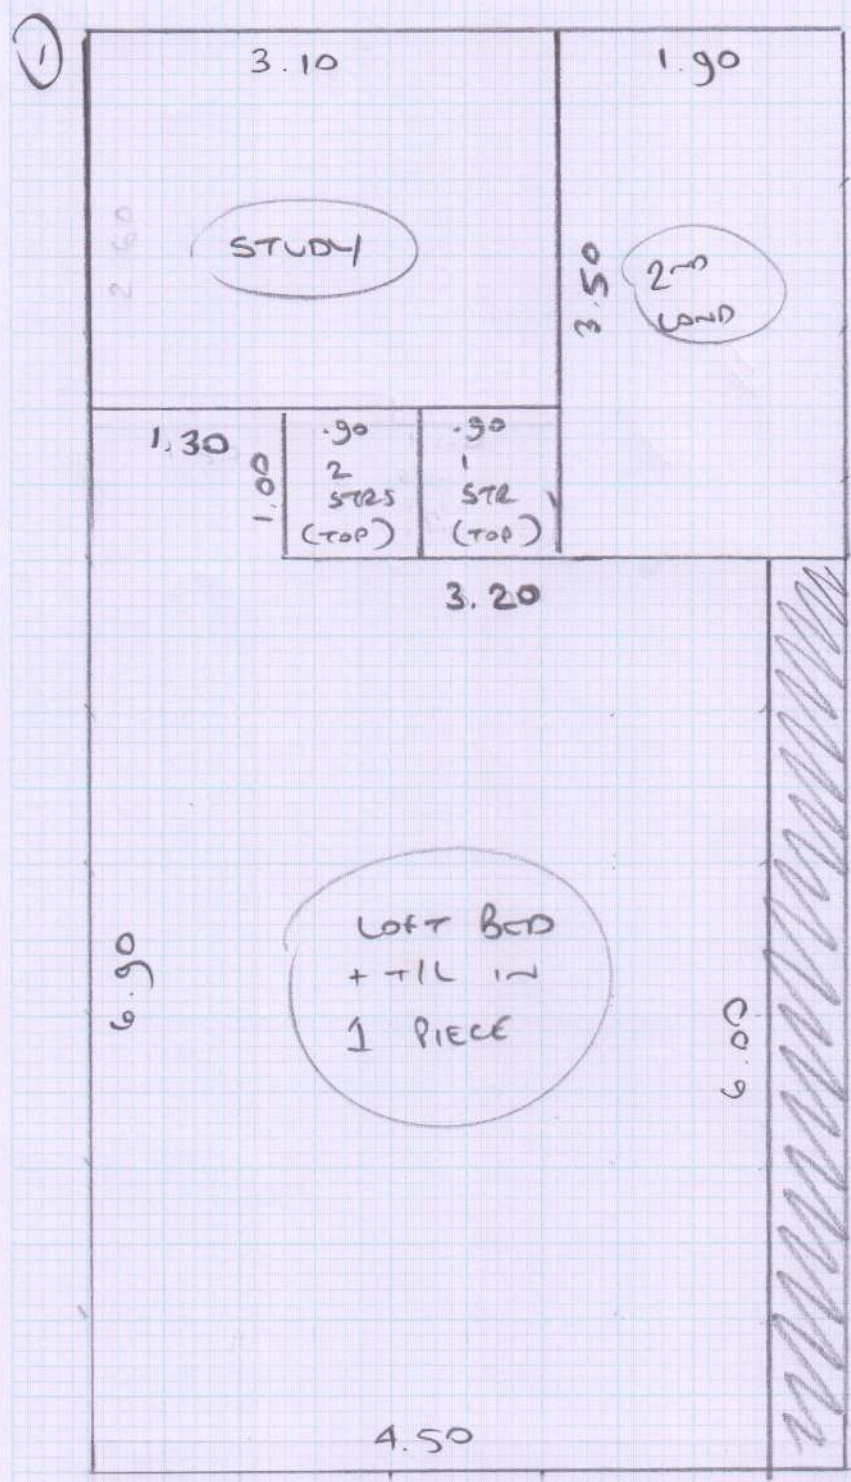 1
3.10
1.90
2.60
STUDY
3.50
2ND
LAND
1.30
1.00
.90
2
STRS
(TOP)
.90
1
STR
(TOP)
3.20
6.90
LOFT BED
+ T/L IN
1 PIECE
6.00
4.50